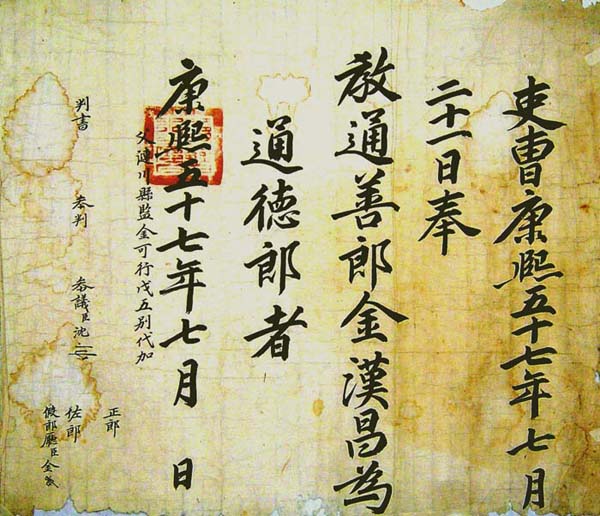 吏曹康熙五十七年七月
二十一日奉
教通善郎金漢昌為
通德郎者
康熙五十七年七月　日
父漣川縣監金可行戊五別代加
判書　參判　參議臣池
正郎
佐郎
假郎廳臣金